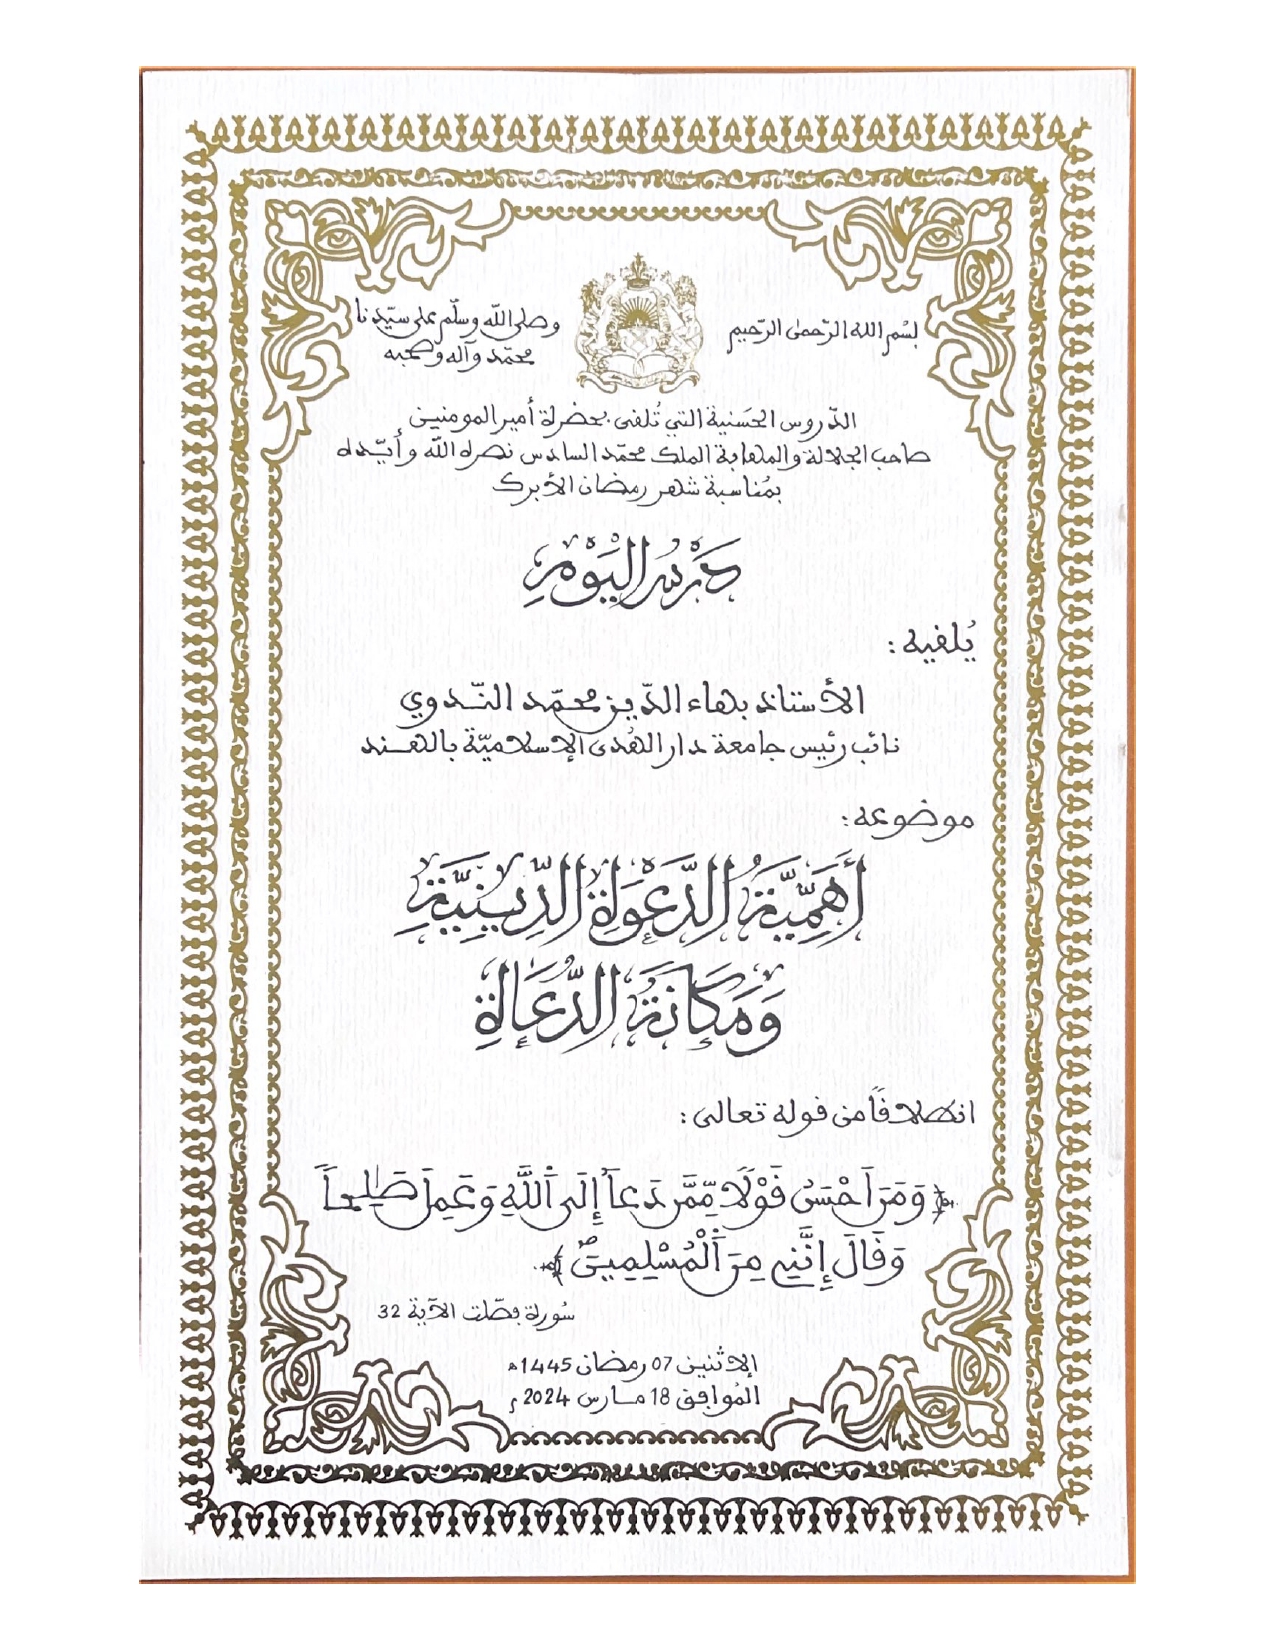 بسم الله الرّحمٰن الرّحيم
وصلى الله وسلّم على سيّدنا
محمّد وآله وصحبه
الدّروس الحَسَنية التي تُلقى بحضرة أمير المومنين
صاحب الجلالة والمهابة الملك محمّد السادس نصره الله وأيّده
بمُناسبة شهر رمضان الأبرك
دَرْسُ الْيَوْمِ
يُلقيه :
الأستاذ بهاء الدّين محمّد النّدوي
نائب رئيس جامعة دار الهُدى الإسلاميّة بالهند
موضوعه :
أَهَمِّيَّةُ الدَّعْوَةِ الدِّينِيَّةِ
وَمَكَانَةُ الدُّعَاةِ
انطلاقًا من قوله تعالى :
﴿ وَمَنَ اَحْسَنُ قَوْلًا مِّمَّن دَعَا إِلَى اَللَّهِ وَعَمِلَ صَٰلِحاً
وَقَالَ إِنَّنِي مِنَ اَلْمُسْلِمِينَ ﴾
سُورة فصّلت الآية 32
الإثنين 07 رمضان 1445ه
المُوافق 18 مارس 2024م